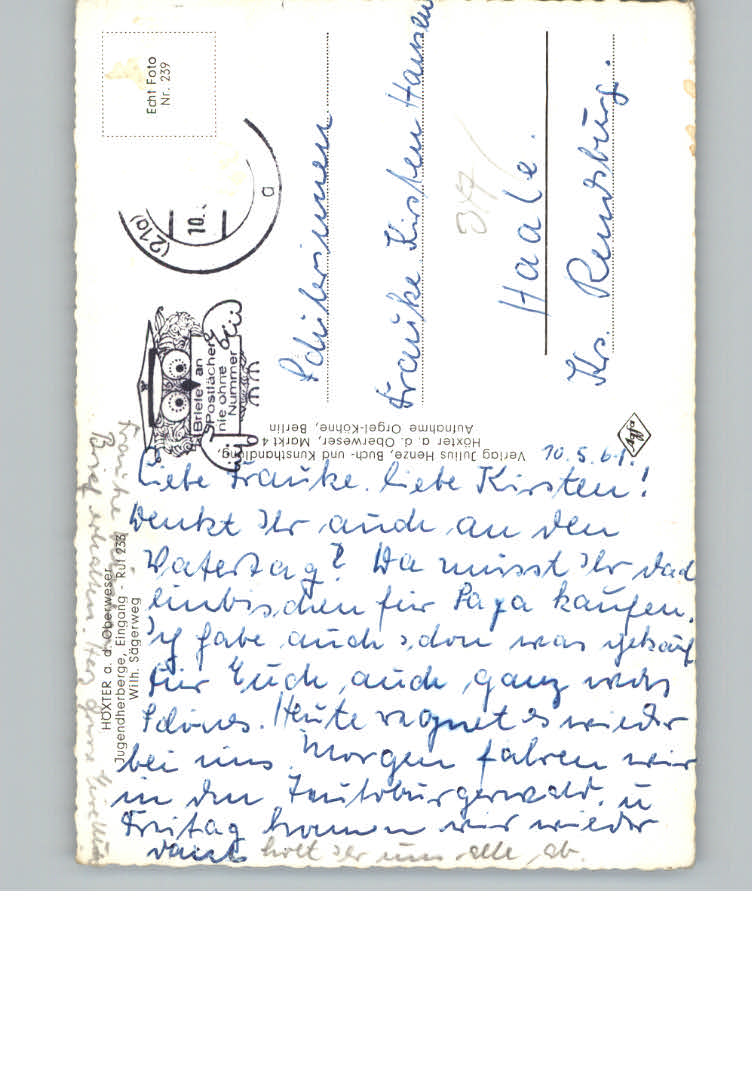 10.5.61.
Liebe Frauke. liebe Kirsten!
Denkt Ihr auch an den
Vatertag? Da müsst Ihr doch
einbischen für Papa kaufen.
Ich habe auch schon was gekauf
für Euch auch ganz was
schönes. Heute regnet es wieder
bei uns. Morgen fahren wir
in den Teutoburgerwald. u
Freitag kommen wir wieder
holt Ihr uns alle ab.
Frauke
Brief erhalten. Herz
HÖXTER a. d. Oberweser
Jugendherberge, Eingang - Ruf 233
Wilh. Sägerweg
Verlag Julius Henze, Buch- und Kunsthandlung,
Höxter a. d. Oberweser, Markt 4
Aufnahme Orgel-Köhne, Berlin
Agfa
Echt Foto
Nr. 239
(21a)
10.
a
Briefe an
Postfächer
nie ohne
Nummer
Schülerinnen
Frauke Kirsten Hansen
Haale.
Krs. Rendsburg.